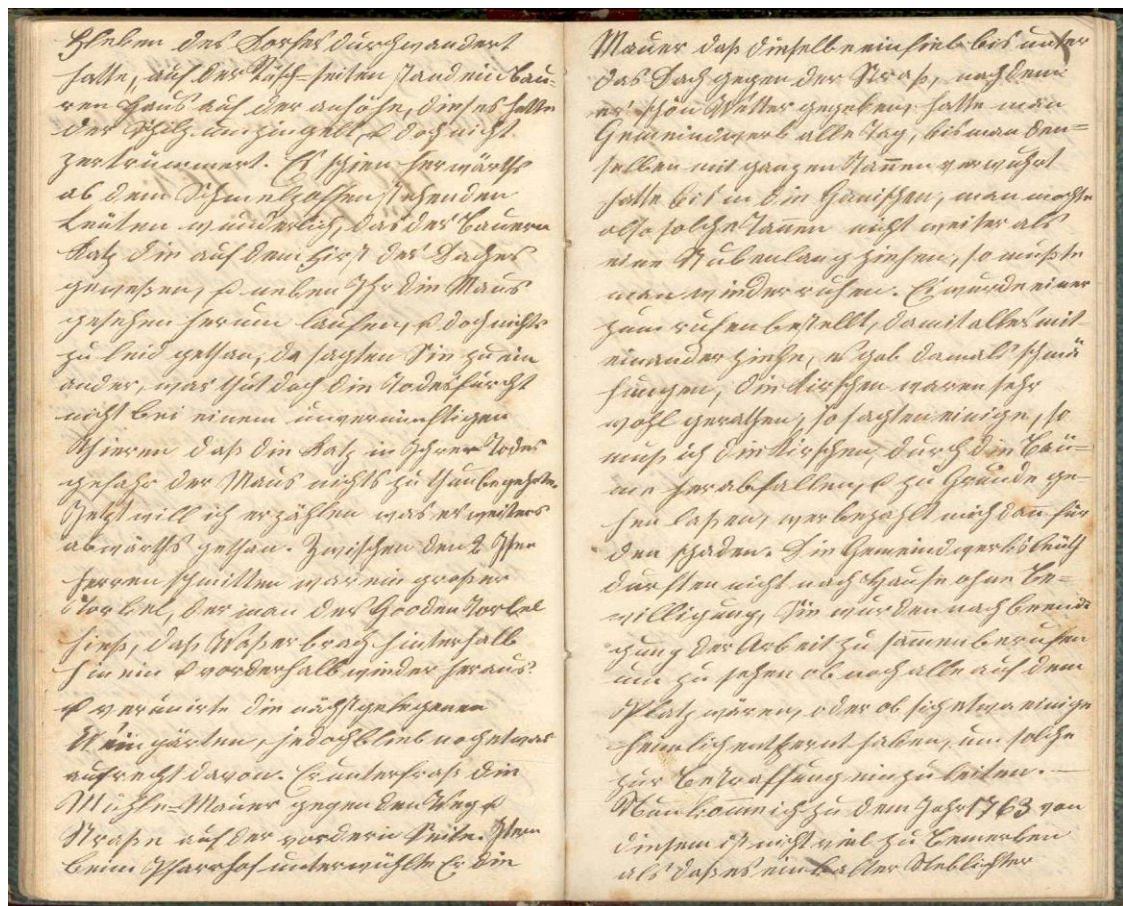 Hleken des Dorfes durchwandert
hatte, auf der Rüsch-seiten stand ein Bau-
ren Haus auf der anhöhe, dieses hatte
der Schilz umzingelt & doch nicht
zertrümmert. Es schien herwärths
ab dem Schmelzofen stehenden
Leüten wunderlich, das des Bauern
Katz die auf dem First des Daches
geweßen, & neben Ihr die Maus
gesehen herum laufen, & doch nichts
zu leid gethan, da sagten Sie zu ein
ander, was thut doch die Todesfurcht
nicht bei einem unvernünftigen
Thieren daß die Katz in Ihrer Todes
gefahr der Maus nichts zu thun begehrte.
Jetzt will ich erzählen was es weiters
abwärths gethan. Zwischen den 2
herren schmitten war ein großer
Torkel, der man des Gooden Torkel
hieß, daß Waßer brach hinterhalb
hinein & vorderhalb wieder heraus.
& veruirte die nächstgelegenen
Weingärten, jedoch blieb noch etwas
aufrecht davon. Er unterfraß die
Mühle-Mauer gegen den Weg &
Straße auf der vordern Seite. Item
beim Pfarrhof unterwühlte Er die
Mauer daß dieselbe einfiel bis unter
das Dach gegen der Straß, nachdem
er schön Wetter gegeben, hatte man
Gemeindwerk alle Tag, bis man den-
selben mit ganzen Tannen verwuhrt
hatte bis in die Hanischen, man mochte
also solche Tannen nicht weiter als
eine Stubenlang ziehen, so mußte
man wieder ruhen. Es wurde einer
zum rufen bestellt, damit alles mit-
einander ziehe, es gab damals schmä
hungen, die Kirschen waren sehr
wohl gerathen, so sagten einige, so
muß ich die Kirschen, durch die Bäu-
me herabfallen, & zu Grunde ge-
hen laßen, wer bezahlt mich dan für
den schaden. Die Gemeindwerksleüth
durften nicht nach Hause ohne Be-
willigung, Sie wurden nach beendi
gung der Arbeit zusammen berufen
um zu sehen ob noch alle auf dem
Platz wären, oder ob sich etwa einige
heimlich entfernt haben, um solche
zur Bestraffung einzuleiten. —
Nun komme ich zu dem Jahr 1763 von
diesem ist nicht viel zu Bemerken
als daß es ein kalter Neblichter